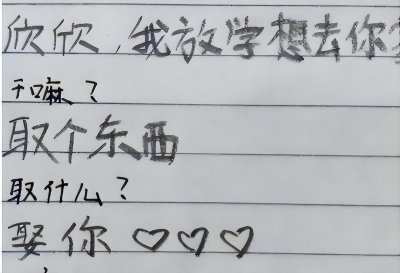 欣欣，我放学想去你
干嘛？
取个东西
取什么？
娶你♡♡♡